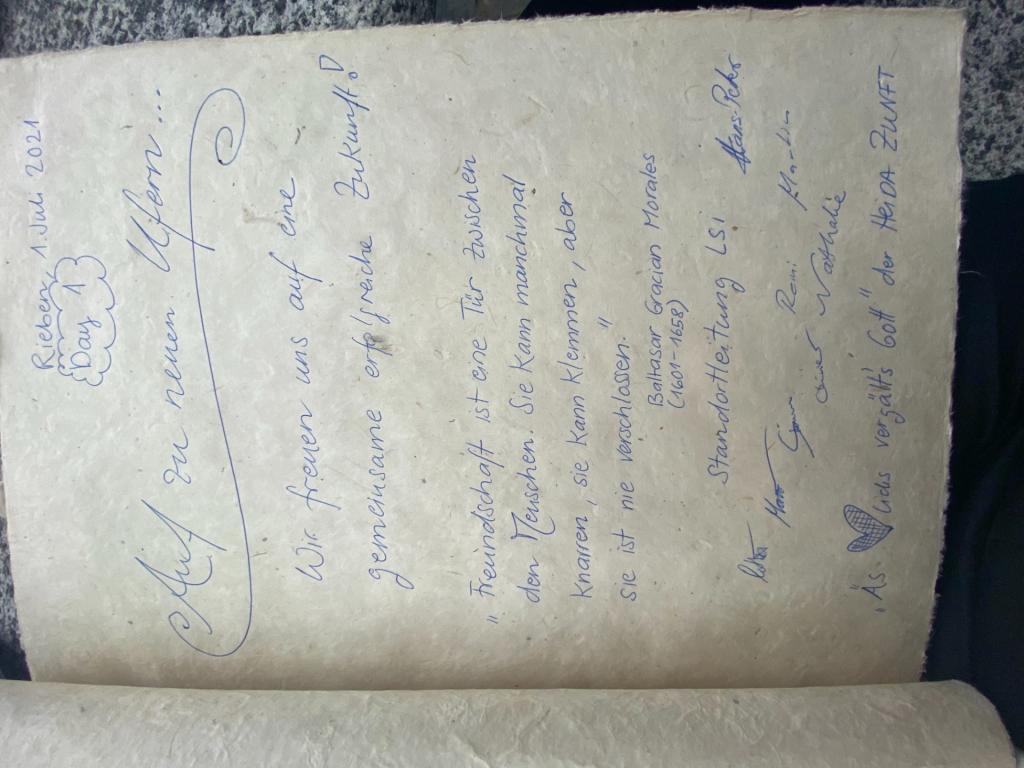 Rieben, 1. Juli 2021
Day 1
Auf zu neuen Ufern...
Wir freuen uns auf eine
gemeinsame erfolgreiche Zukunft!
"Freundschaft ist eine Tür zwischen
den Menschen. Sie kann manchmal
knarren, sie kann klemmen, aber
sie ist nie verschlossen."
Baltasar Gracian Morales
(1601-1658)
Standortleitung LSI
Hans-Peter
Reni
Nathalie
"Äs lichs vergälts Gott" der HEIDA ZUNFT